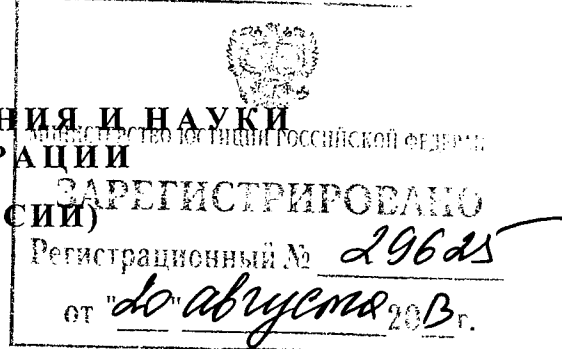 НИЯ И НАУКИ
МИНИСТЕРСТВО ЮСТИЦИИ РОССИЙСКОЙ ФЕДЕРА
РАЦИИ
ЗАРЕГИСТРИРОВАНО
СИИ)
Регистрационный № 29625
от "20" августа 2013 г.